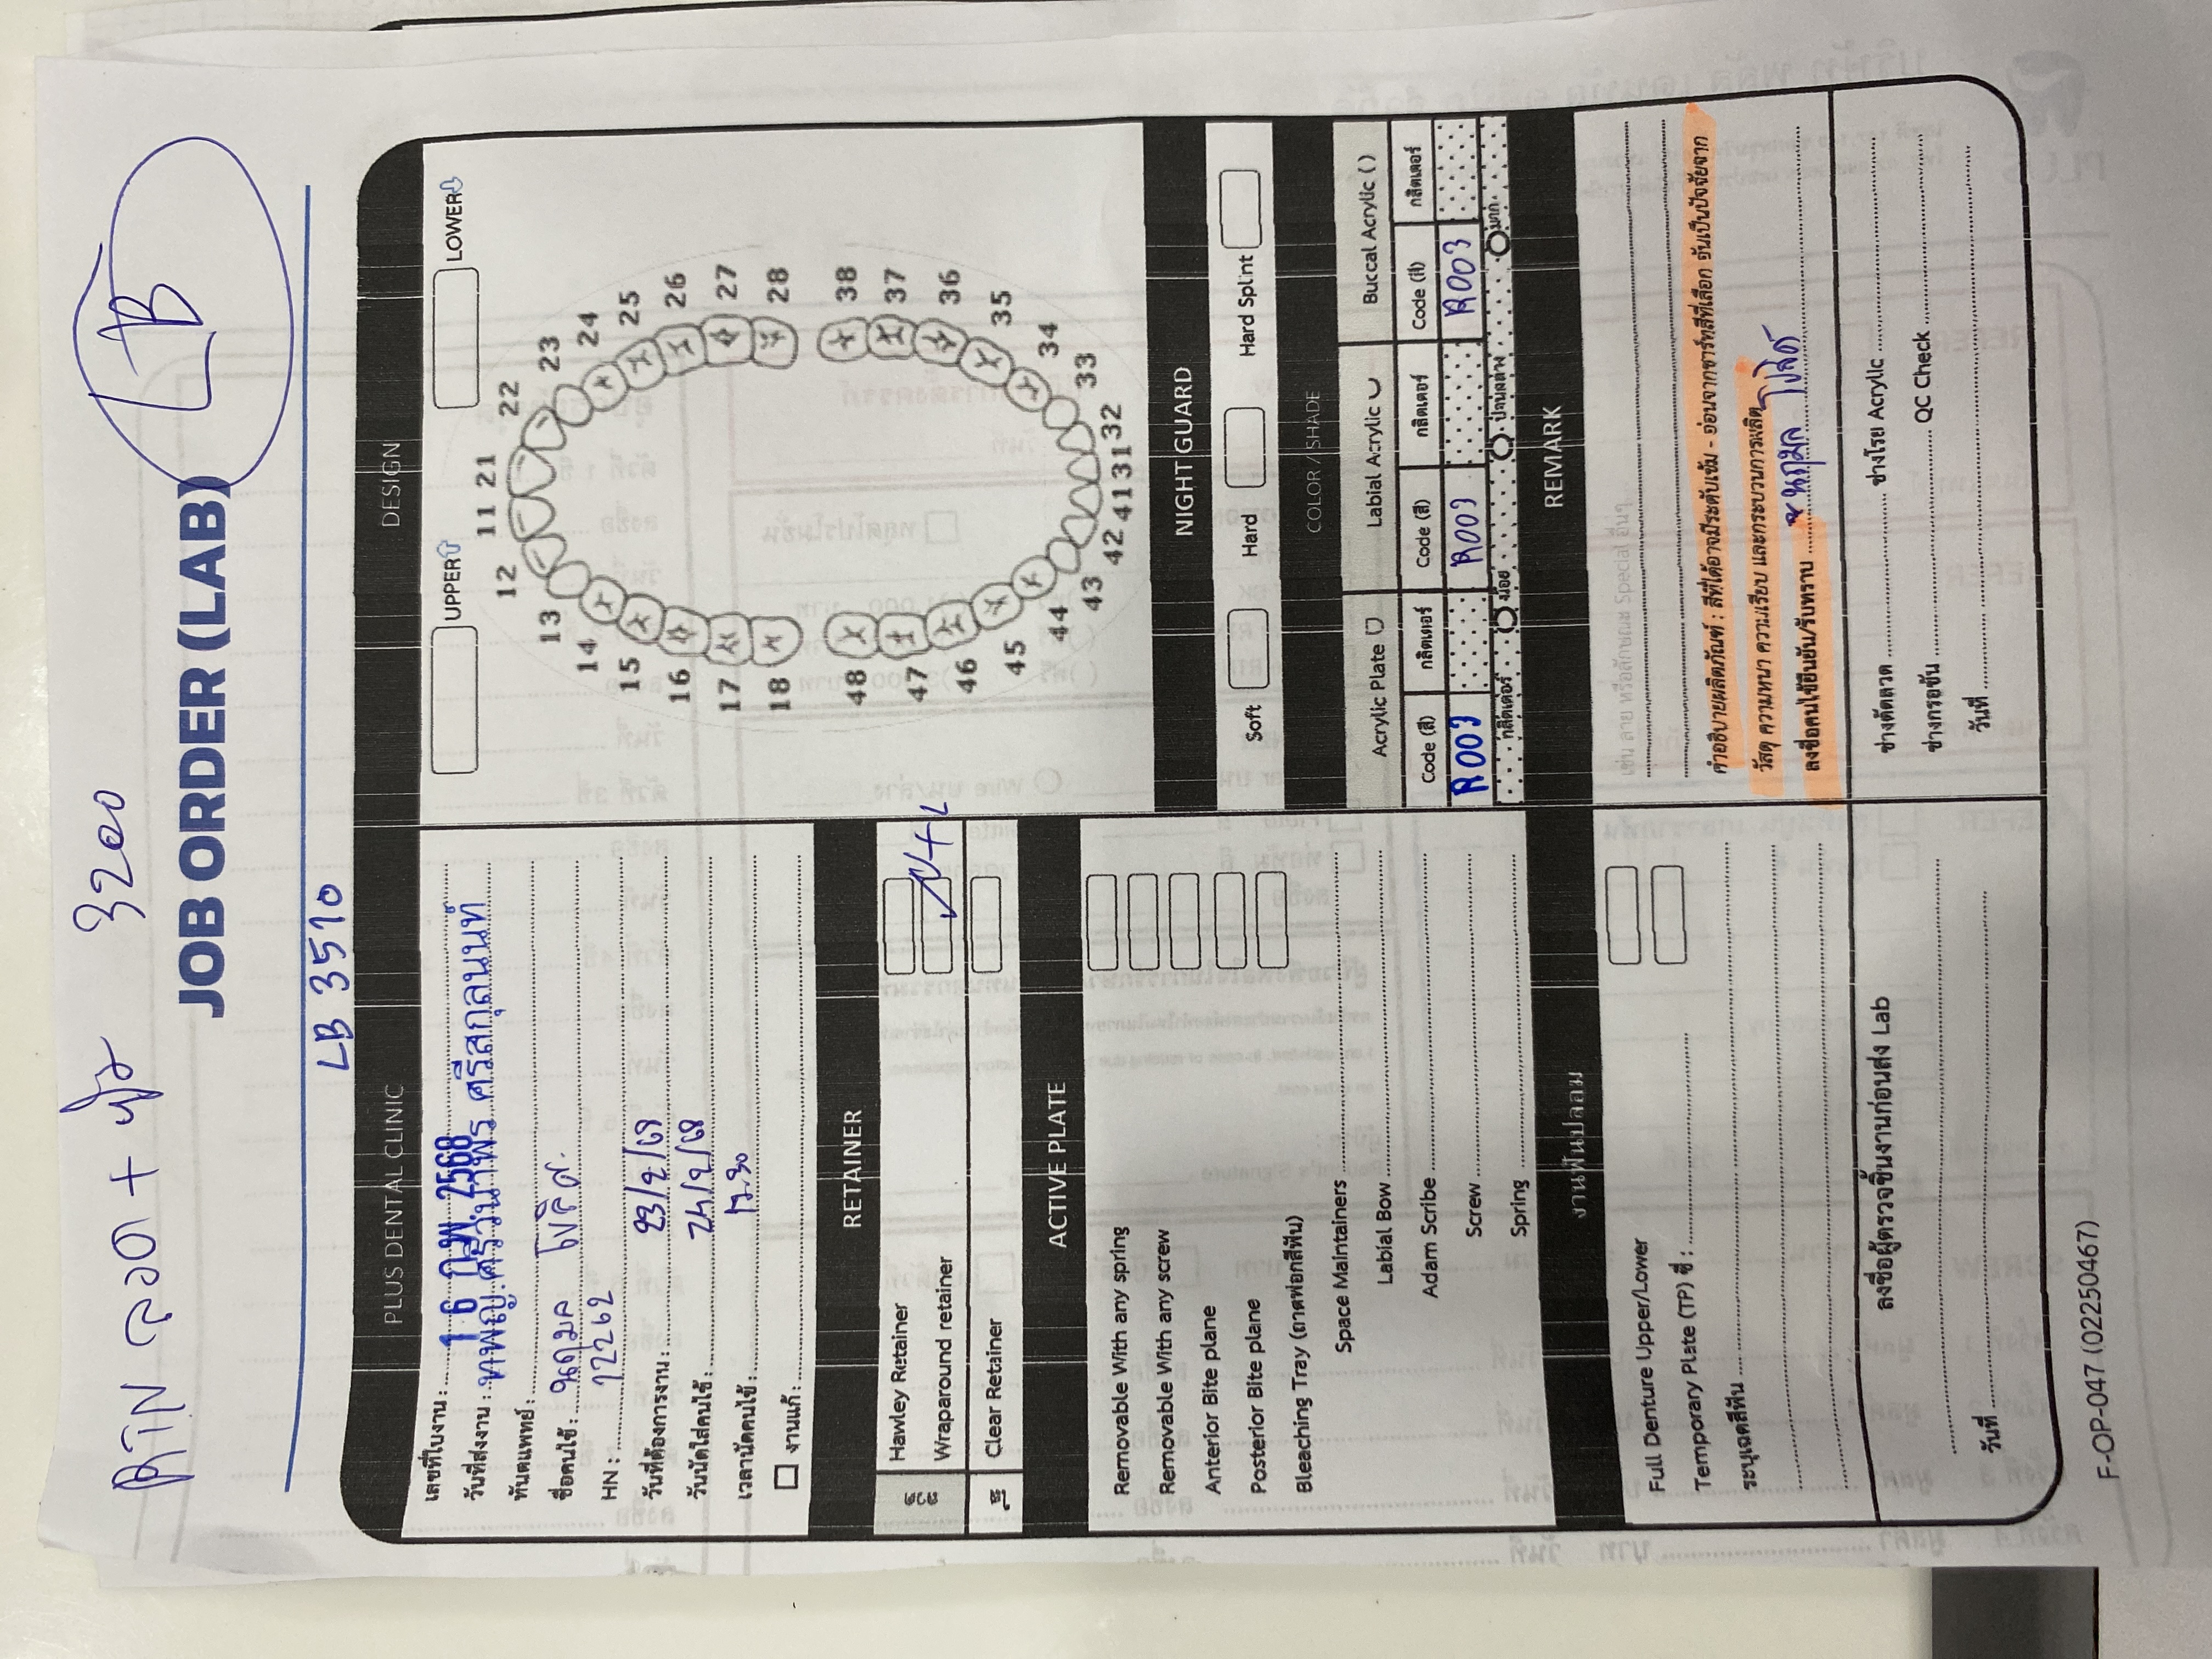 RTN ลวด + พิม 3200
JOB ORDER (LAB)
LB
LB 3510
PLUS DENTAL CLINIC
เลขที่ใบงาน :
วันที่ส่งงาน : 16 กพ. 2568
ทันตแพทย์ : ทพญ.ศรีวนาพร ศรีสกุลนนท์
ชื่อคนไข้ : นฤมล
HN : 12262
วันที่ต้องการงาน : 23/2/68
วันนัดใส่คนไข้ : 24/2/68
เวลานัดคนไข้ : 17.30
งานแก้ :
RETAINER
Hawley Retainer
Wraparound retainer U+L
Clear Retainer
ลวด
ใส
ACTIVE PLATE
Removable With any spring
Removable With any screw
Anterior Bite plane
Posterior Bite plane
Bleaching Tray (ถาดฟอกสีฟัน)
Space Maintainers
Labial Bow
Adam Scribe
Screw
Spring
งานฟันปลอม
Full Denture Upper/Lower
Temporary Plate (TP) ซี่ :
ระบุเฉดสีฟัน
ลงชื่อผู้ตรวจชิ้นงานก่อนส่ง Lab
วันที่
DESIGN
UPPER LOWER
11 21
12 22
13 23
14 24
15 25
16 26
17 27
18 28
48 38
47 37
46 36
45 35
44 34
43 33
42 41 31 32
NIGHT GUARD
Soft Hard Hard Splint
COLOR / SHADE
Acrylic Plate Labial Acrylic Buccal Acrylic ( )
Code (สี) กลิตเตอร์ Code (สี) กลิตเตอร์ Code (สี) กลิตเตอร์
R003 R003 R003
กลิตเตอร์ น้อย ปานกลาง มาก
REMARK
เช่น ลาย หรือลักษณะ Special อื่นๆ
คำอธิบายผลิตภัณฑ์ : สีที่ได้อาจมีระดับเข้ม - อ่อนจากชาร์ทสีที่เลือก อันเป็นปัจจัยจาก
วัสดุ ความหนา ความเรียบ และกระบวนการผลิต
ลงชื่อคนไข้ยืนยัน/รับทราบ นฤมล
ช่างดัดลวด ช่างโรย Acrylic
ช่างกรอขัน QC Check
วันที่
F-OP-047 (02250467)